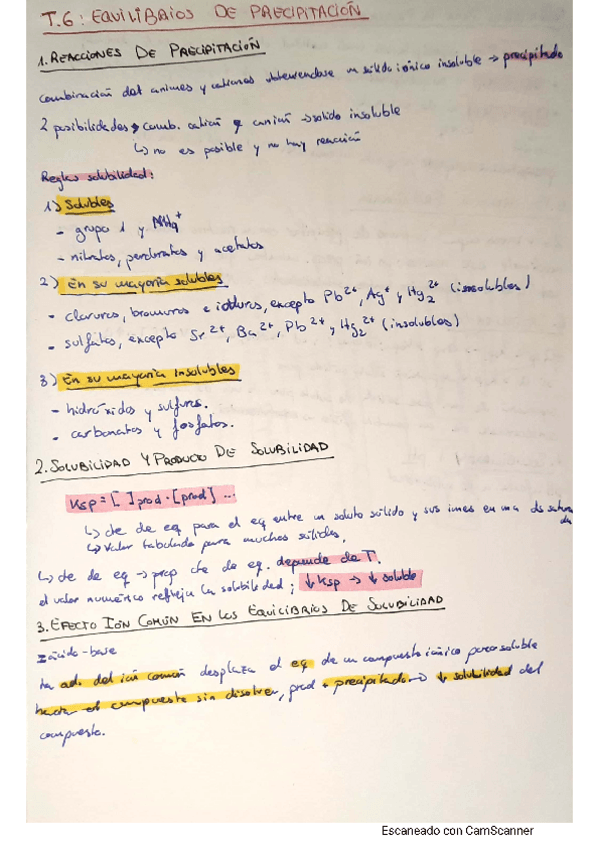 T.6: EQUILIBRIOS DE PRECIPITACIÓN
1. REACCIONES DE PRECIPITACIÓN
combinación de aniones y cationes obteniendose un sólido iónico insoluble → precipitado
2 posibilidades → comb. catión y anión → solido insoluble
↳ no es posible y no hay reacción
Reglas solubilidad:
1) Solubles
- grupo 1 y NH4+
- nitratos, percloratos y acetatos
2) En su mayoría solubles
- cloruros, bromuros e ioduros, excepto Pb2+, Ag+ y Hg2 2+ (insolubles)
- sulfatos, excepto Sr2+, Ba2+, Pb2+ y Hg2 2+ (insolubles)
3) En su mayoría insolubles
- hidróxidos y sulfuros.
- carbonatos y fosfatos.
2. SOLUBILIDAD Y PRODUCTO DE SOLUBILIDAD
Ksp = [ ]prod · [prod] ...
↳ cte de eq para el eq entre un soluto sólido y sus iones en una ds satura
da
↳ Valor tabulado para muchos sólidos.
↳ cte de eq → prop cte de eq. depende de T.
el valor numérico refleja la solubilidad; ↓ Ksp → ↓ soluble
3. EFECTO IÓN COMÚN EN LOS EQUILIBRIOS DE SOLUBILIDAD
ácido-base
ad. del ión común desplaza el eq de un compuesto iónico poco soluble
hacia el compuesto sin disolver, prod + precipitado → ↓ solubilidad del
compuesto.
Escaneado con CamScanner